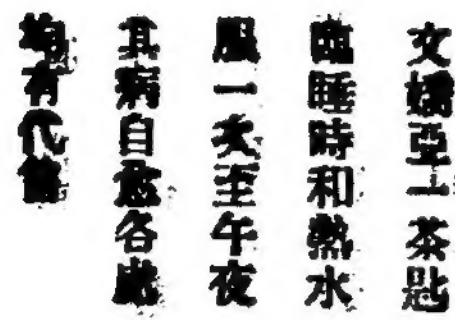 文嫣亞一茶匙
臨睡時和熱水
服一次至午夜
其病自愈各處
均有代售